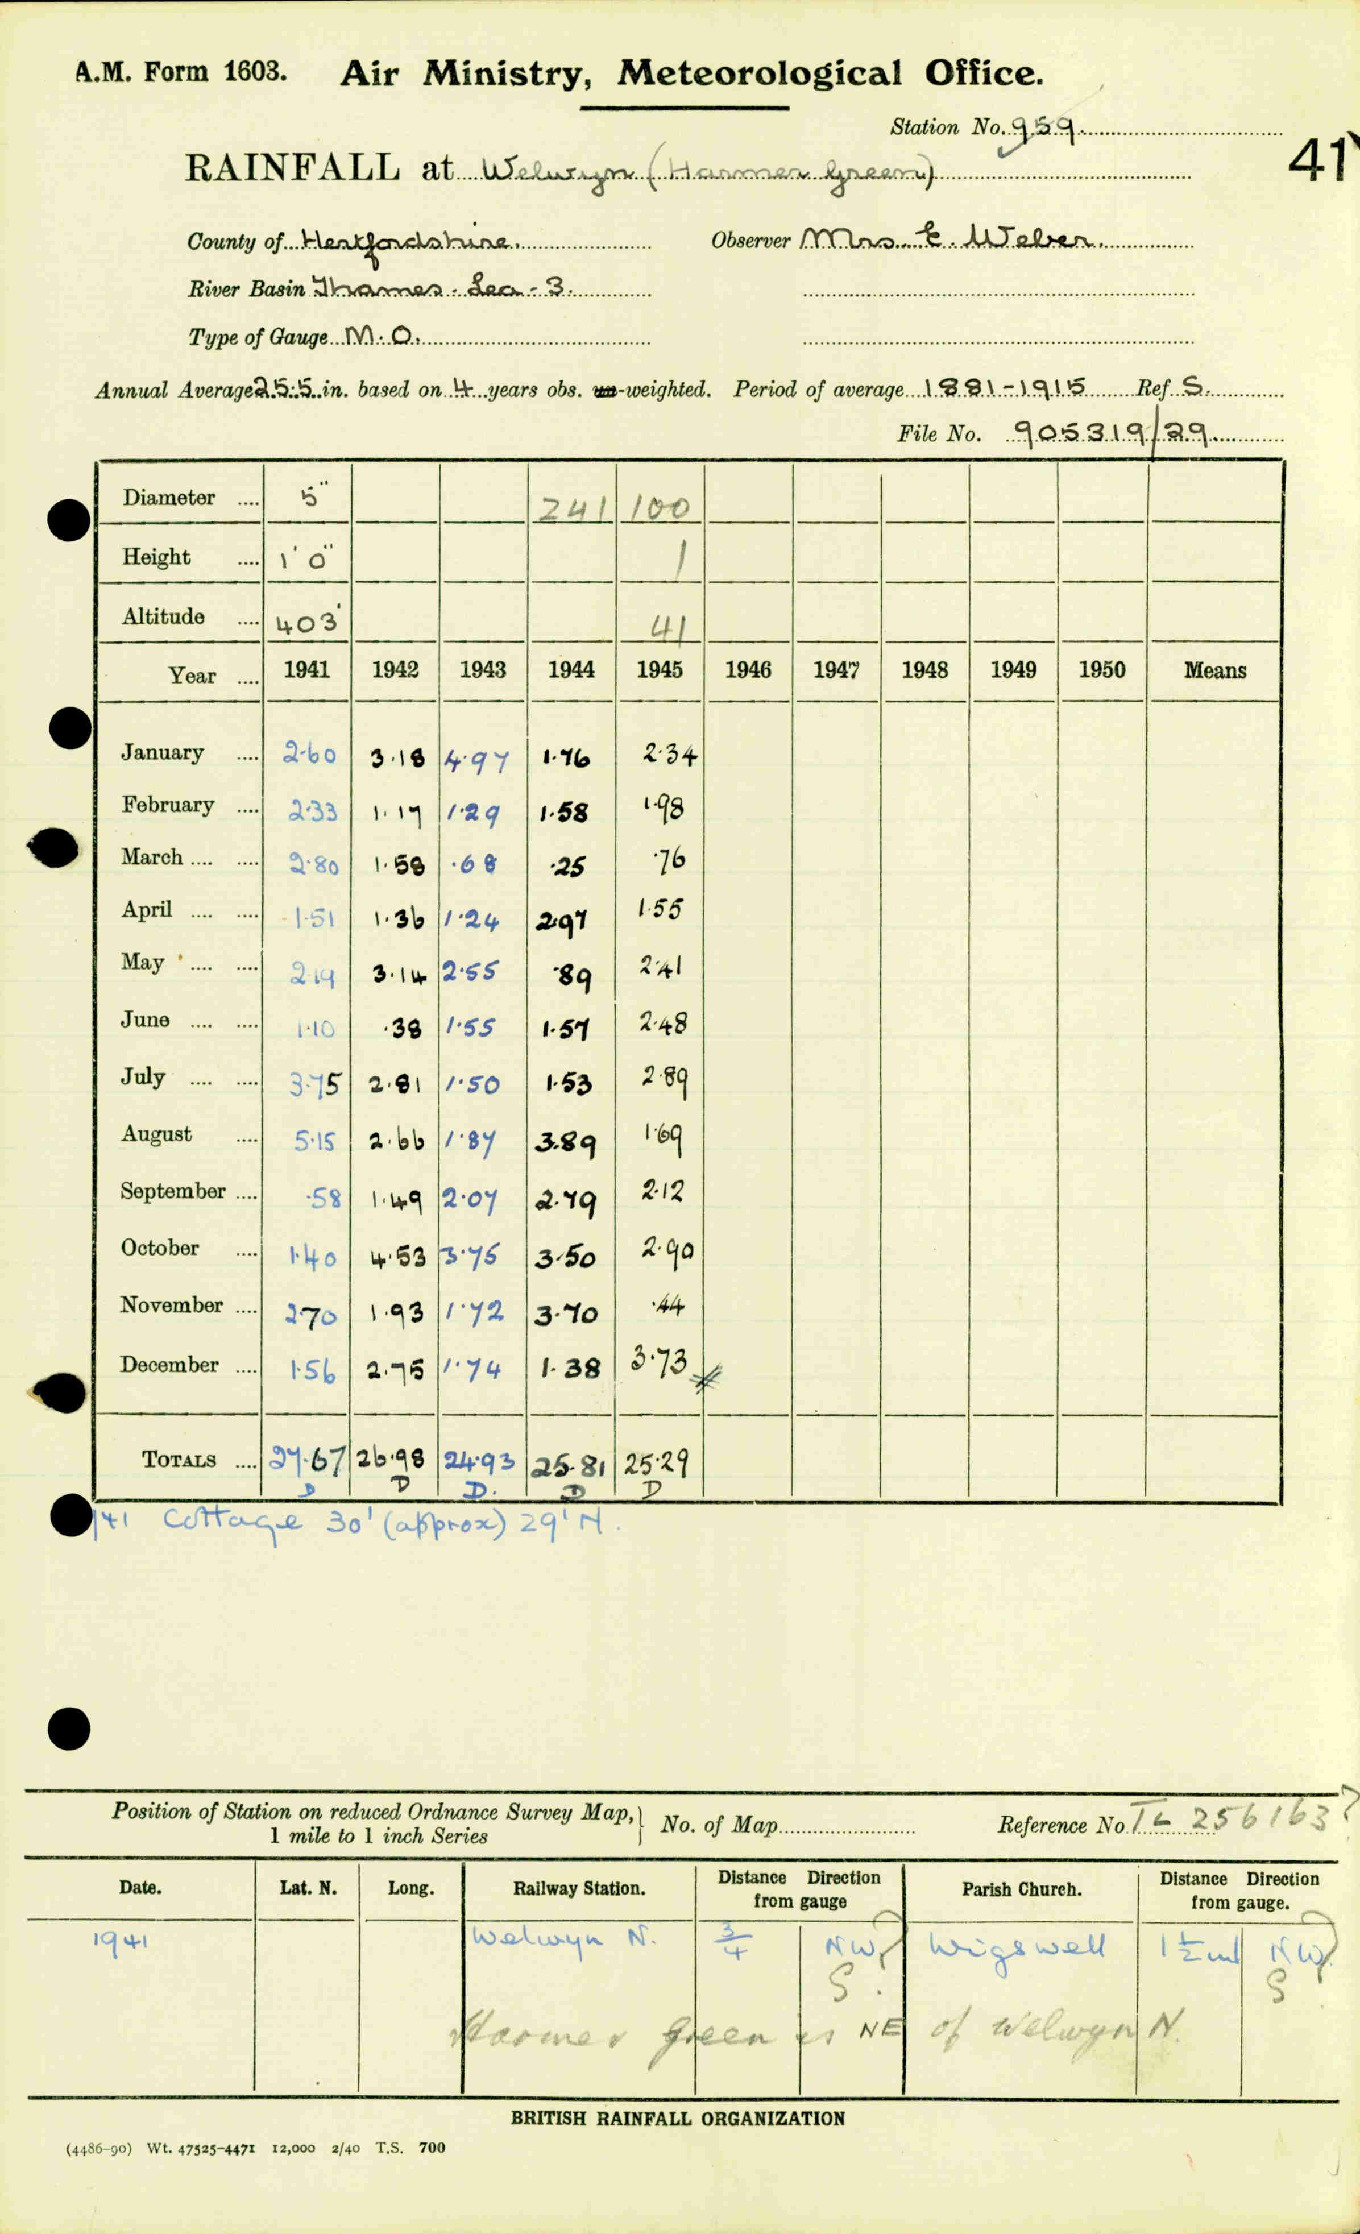 A.M. Form 1603. Air Ministry, Meteorological Office.
Station No. 959.
41
RAINFALL at Welwyn (Harmer Green)
County of Hertfordshire. Observer Mrs E. Weber.
River Basin Thames - Lea - 3.
Type of Gauge M.O.
Annual Average 25.5 in. based on 4 years obs. un-weighted. Period of average 1881-1915 Ref S.
File No. 905319/29.
Diameter .... 5" 241 100
Height .... 1' 0" 1
Altitude .... 403' 41
Year .... 1941 1942 1943 1944 1945 1946 1947 1948 1949 1950 Means
January .... 2.60 3.18 4.97 1.76 2.34
February .... 2.33 1.17 1.29 1.58 1.98
March .... .... 2.80 1.58 .68 .25 .76
April .... .... 1.51 1.36 1.24 2.97 1.55
May .... .... 2.19 3.14 2.55 .89 2.41
June .... .... 1.10 .38 1.55 1.57 2.48
July .... .... 3.75 2.81 1.50 1.53 2.89
August .... 5.15 2.66 1.87 3.89 1.69
September .... .58 1.49 2.07 2.79 2.12
October .... 1.40 4.53 3.75 3.50 2.90
November .... 2.70 1.93 1.72 3.70 .44
December .... 1.56 2.75 1.74 1.38 3.73
TOTALS .... 27.67 26.98 24.93 25.81 25.29
D D D. D D
/41 Cottage 30' (approx) 29' N.
Position of Station on reduced Ordnance Survey Map, 1 mile to 1 inch Series } No. of Map Reference No TL 256163?
Date. Lat. N. Long. Railway Station. Distance Direction from gauge Parish Church. Distance Direction from gauge.
1941 Welwyn N. 3/4 NW? Wigswell 1 1/2 ml NW?
S? S
Harmer Green is NE of Welwyn N.
BRITISH RAINFALL ORGANIZATION
(4486-90) Wt. 47525-4471 12,000 2/40 T.S. 700